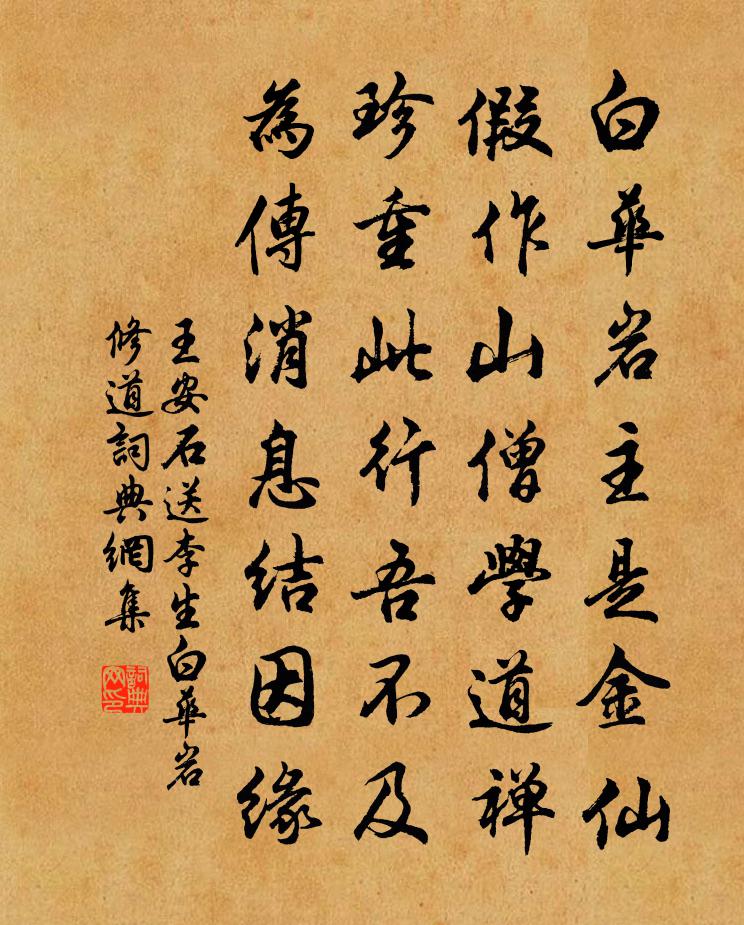 白華岩主是金仙
假作山僧學道禅
珍重此行吾不及
為傳消息结因缘
王安石送李生白華岩
修道詞典網集
詞典网印